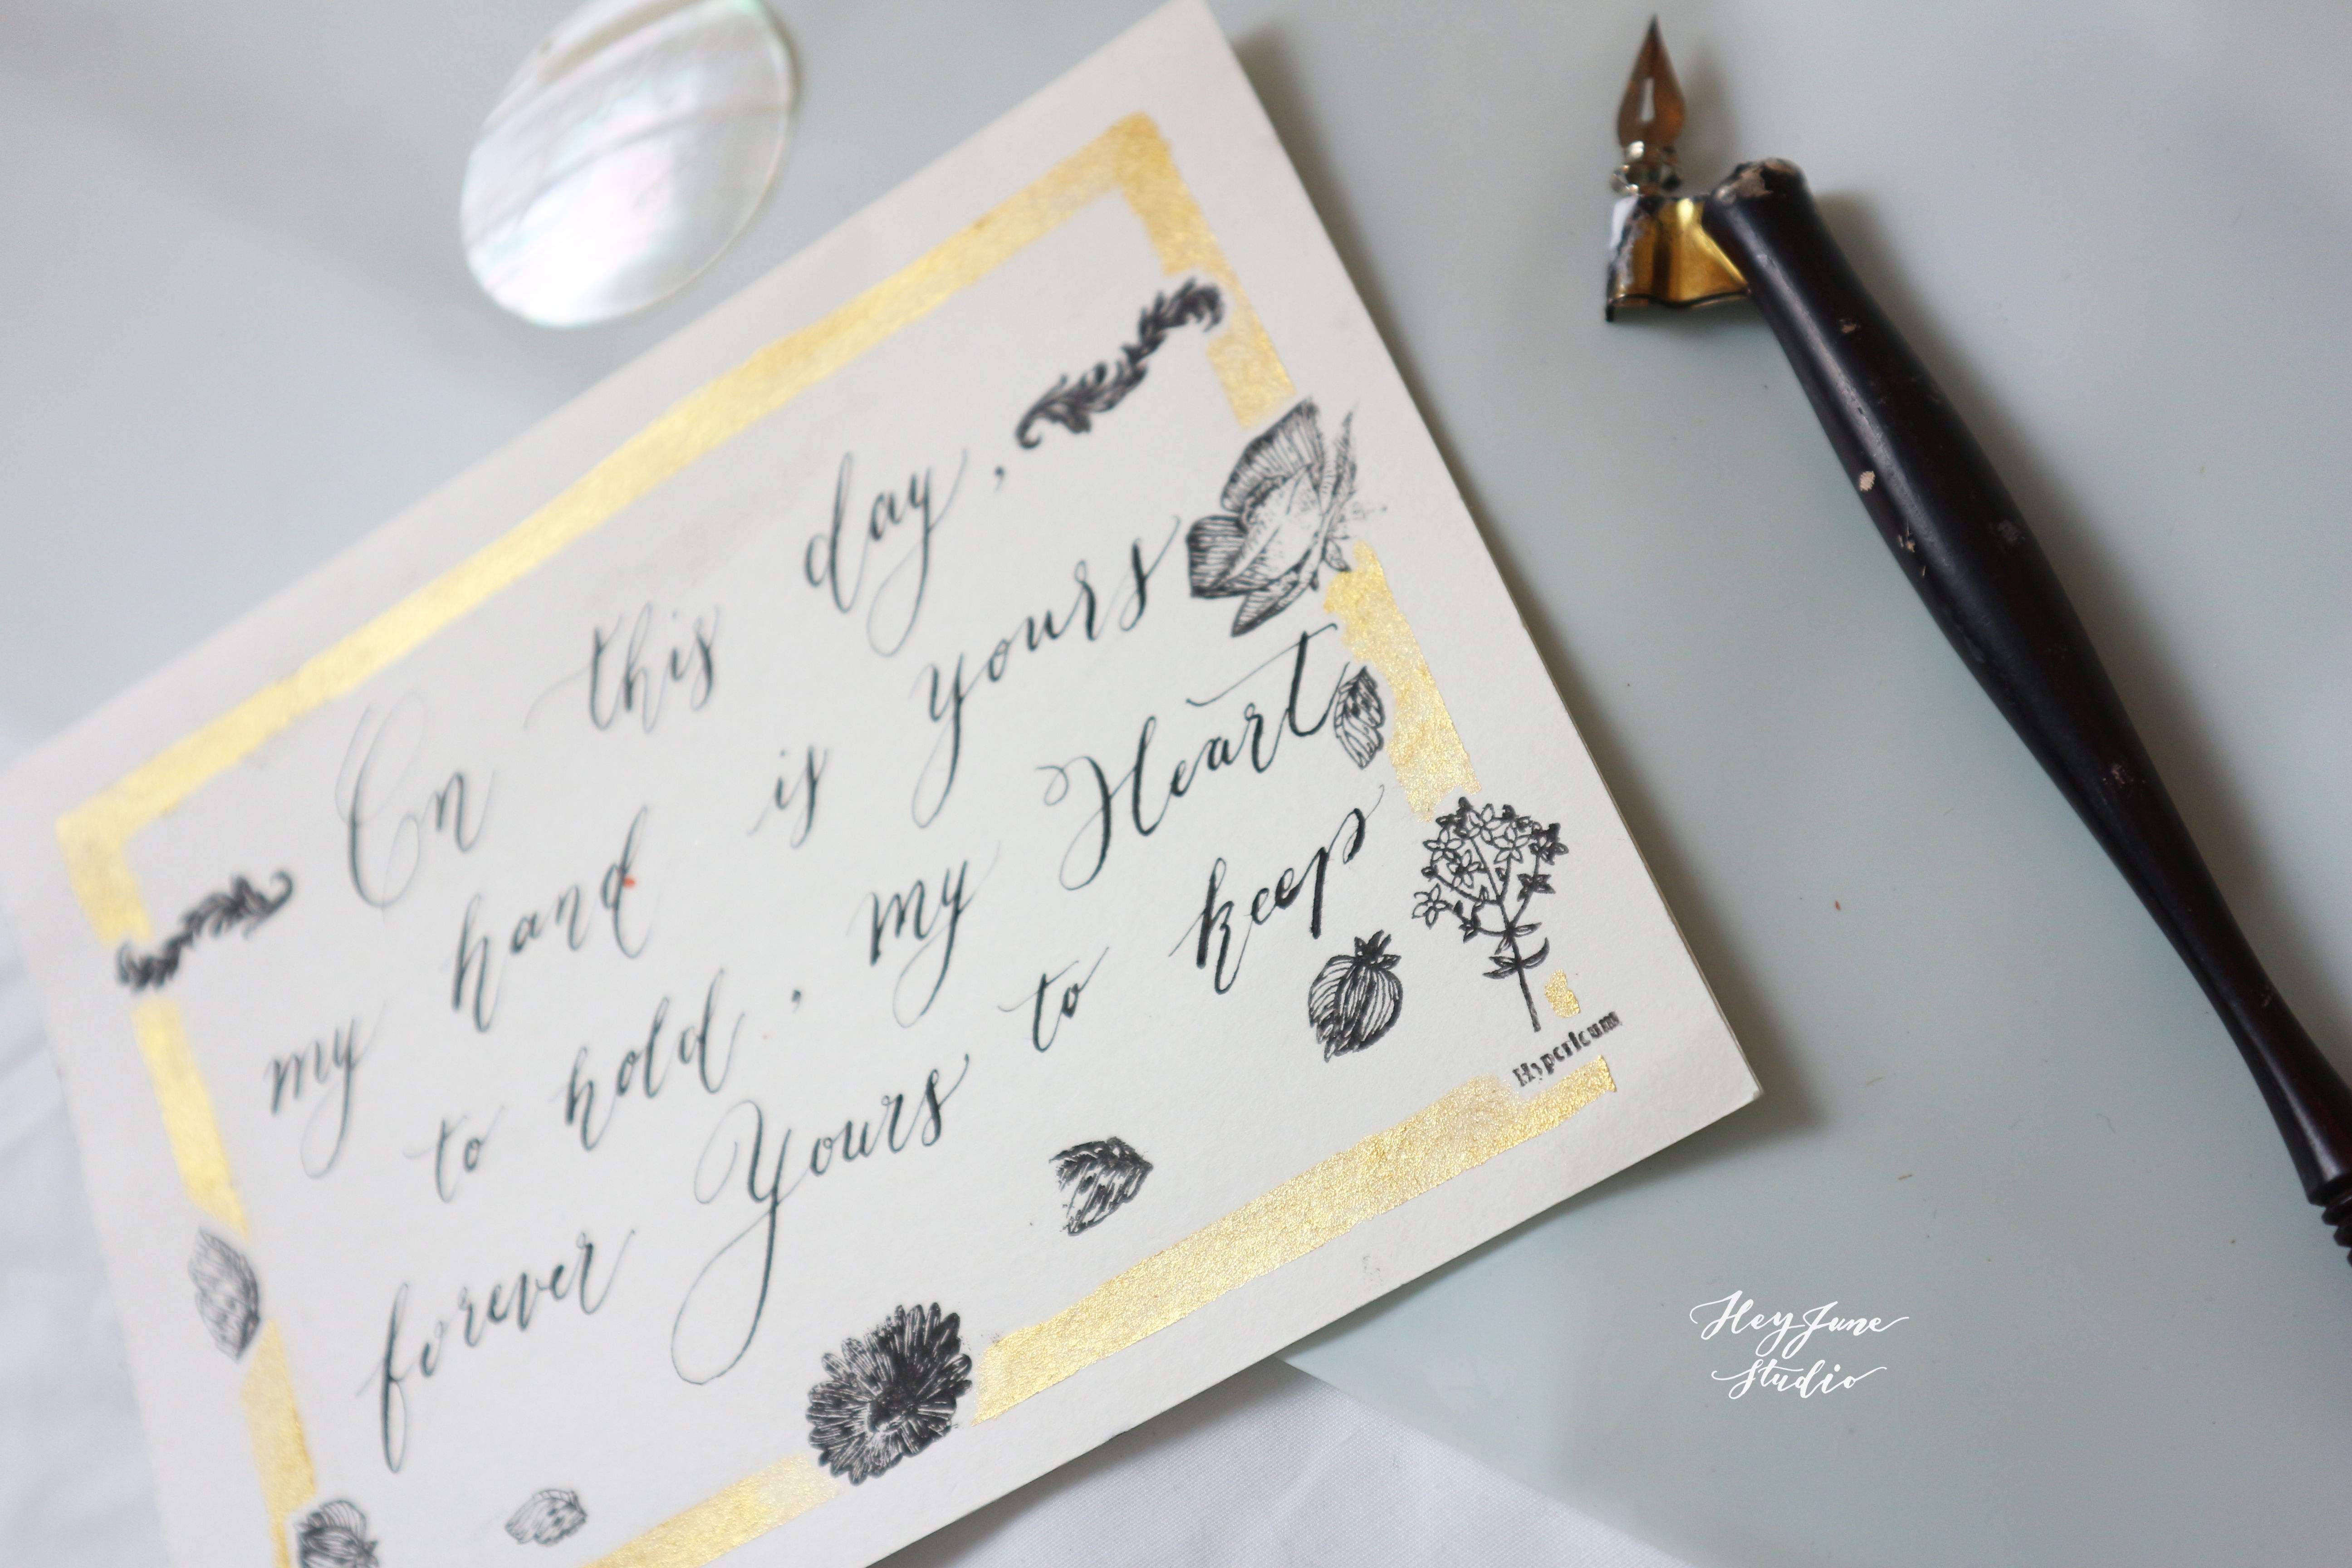 On this day,
my hand is yours
to hold, my Heart
forever Yours to keep
Hypericum
Hey June
Studio